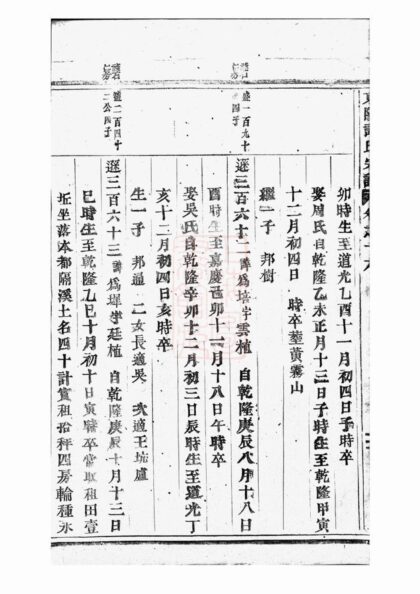 卯時生至道光乙酉十一月初四日子時卒
娶周氏自乾隆乙未正月十三日子時生至乾隆甲寅
十二月初四日 時卒葬黃霧山
繼一子 邦樹
遜三百六十二 諱爲培字雲植 自乾隆庚辰八月十八日
酉時生至嘉慶己卯十一月十八日午時卒
娶吳氏自乾隆辛卯十二月初三日辰時生至道光丁
亥十二月初四日亥時卒
生一子 邦通 二女長適吳 次適王坑盧
遜三百六十三 諱爲墀字廷植 自乾隆庚辰十月十三日
巳時生至乾隆乙巳十月初十日寅時卒常取租田壹
坵坐落本都隔溪土名四十計實租拾秤四房輪種永
一百九十
四子
二百四十
二公四子